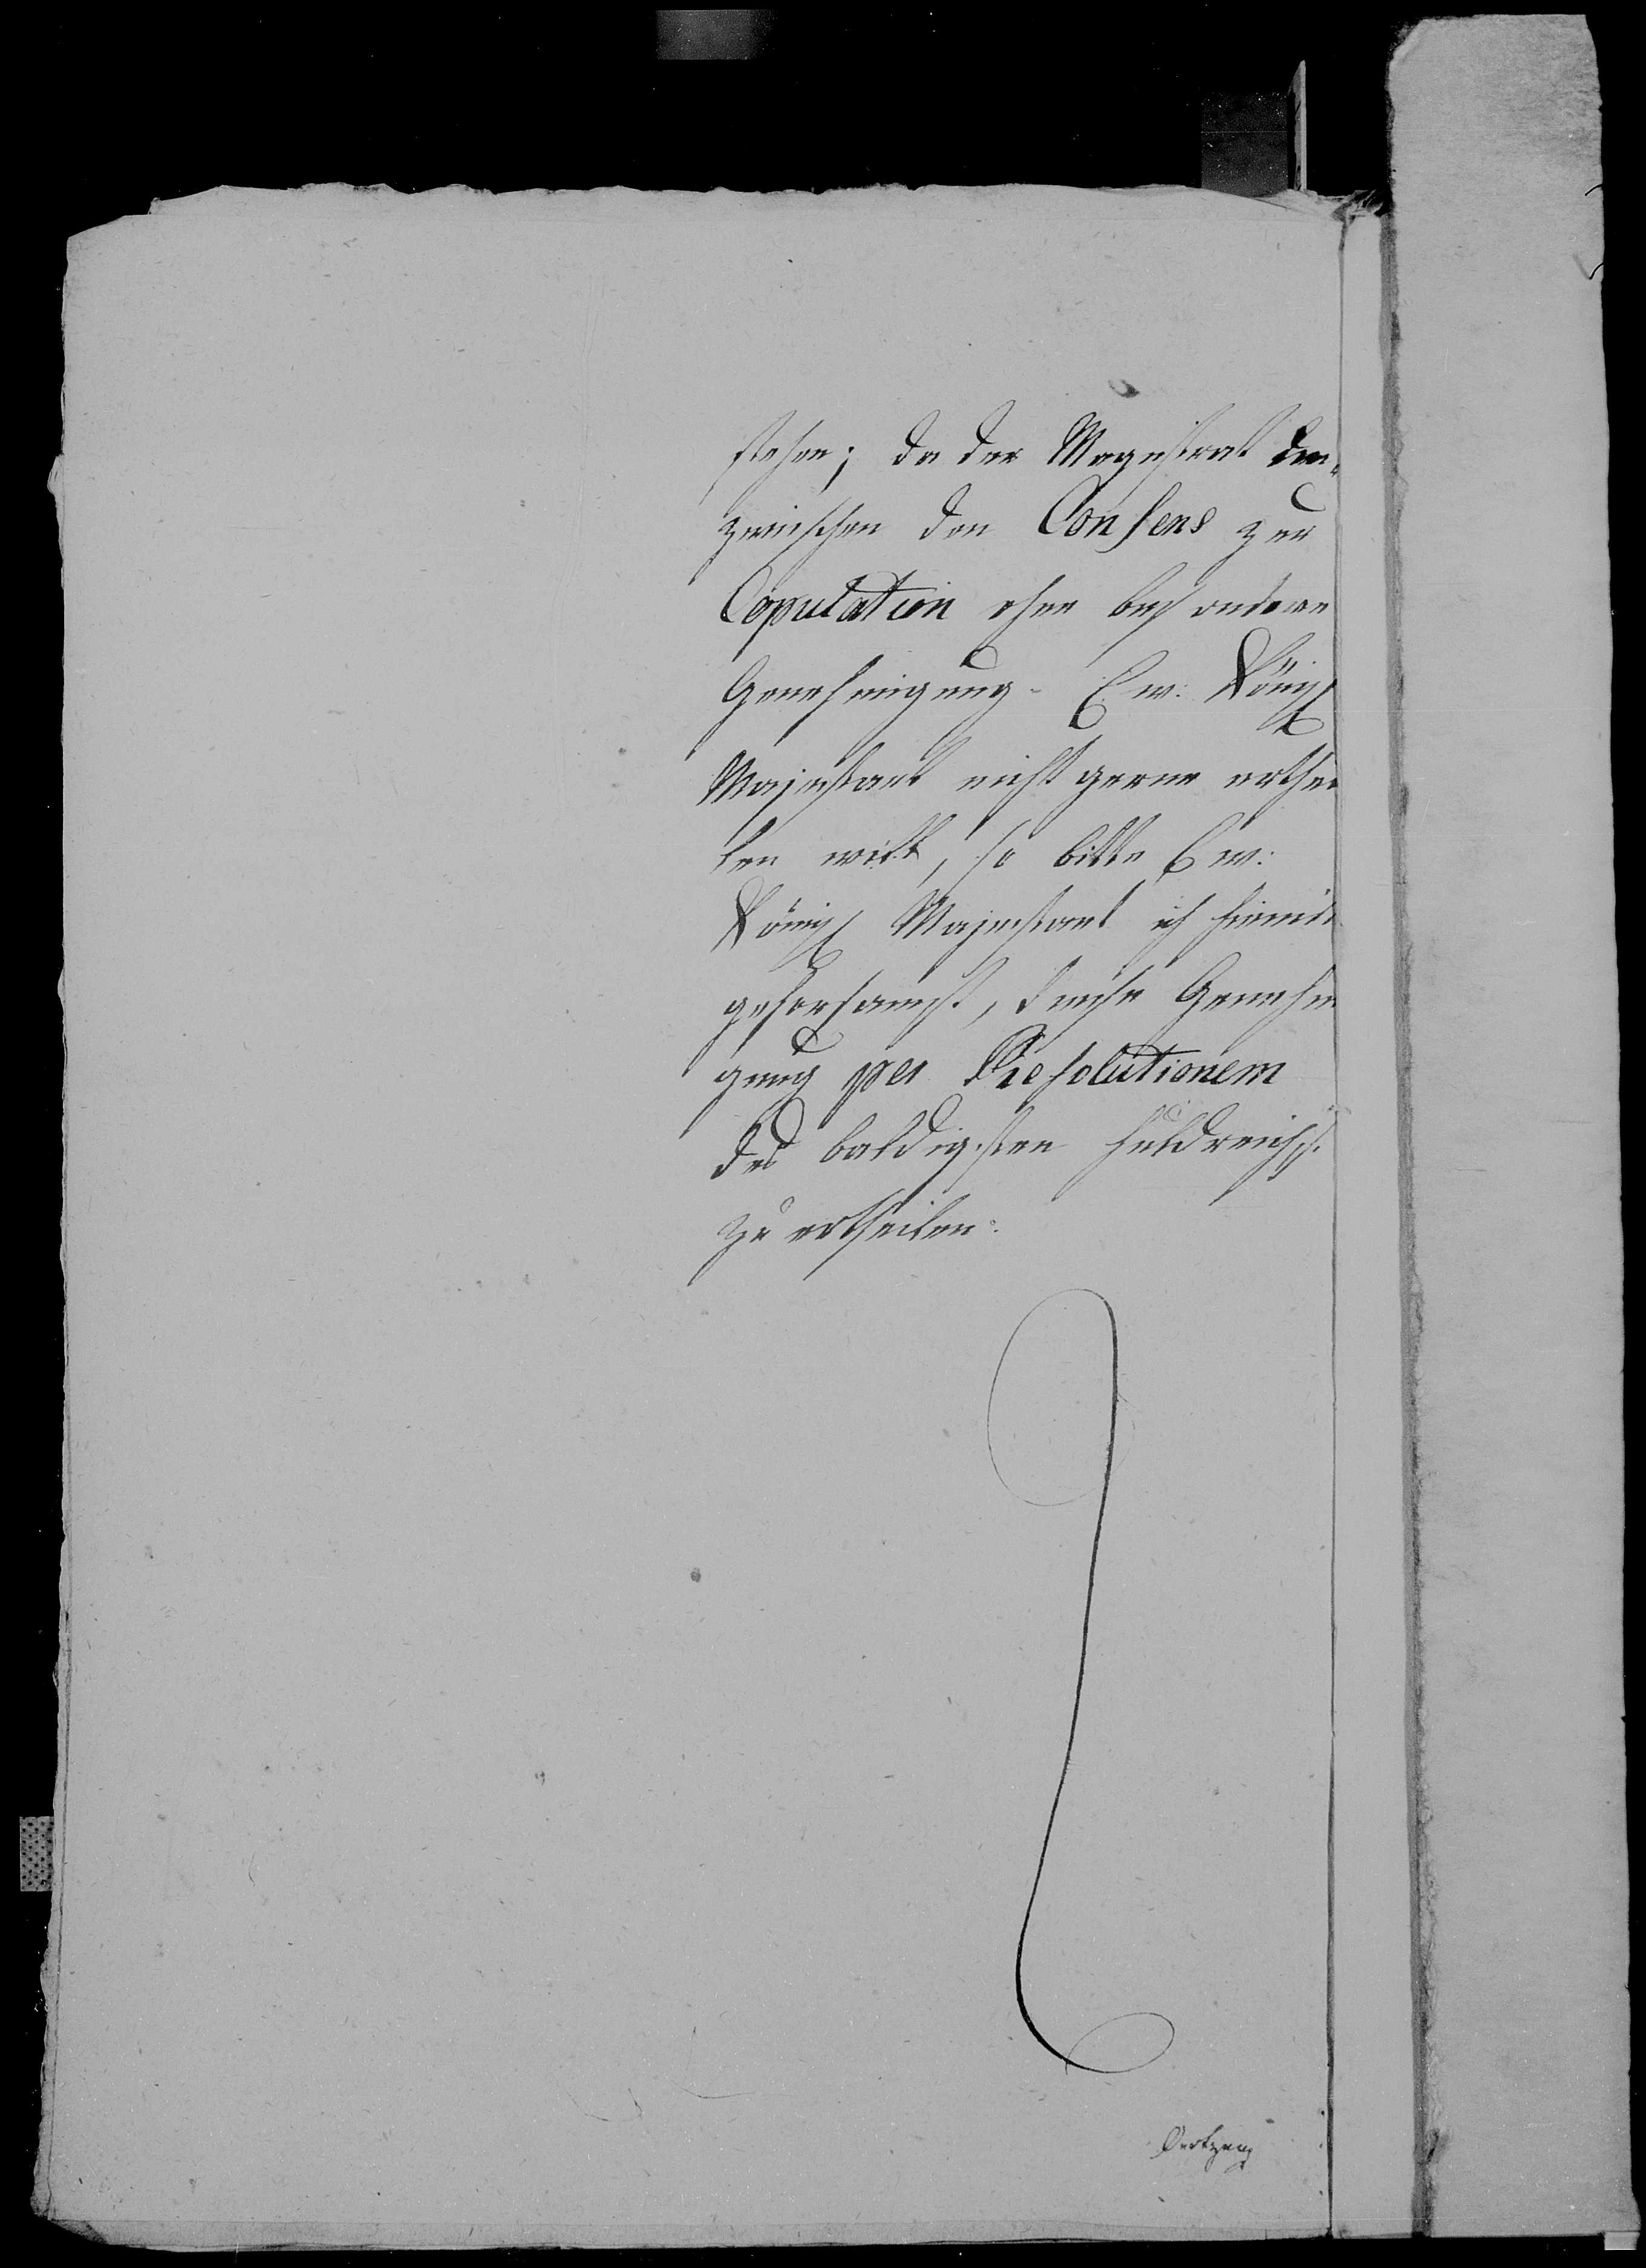 stehen; da der Magistrat in„
zwischen den Consens zur
Copulation ohne besondere
Genehmigung Ew: Königl
Majestaet nicht gerne erthei
len will, so bitte Ew:
Königl Majestaet ich hiemit
gehorsamst, diese Genehmi
gung per Resolutionem
des baldigsten huldreichst
zu ertheilen.